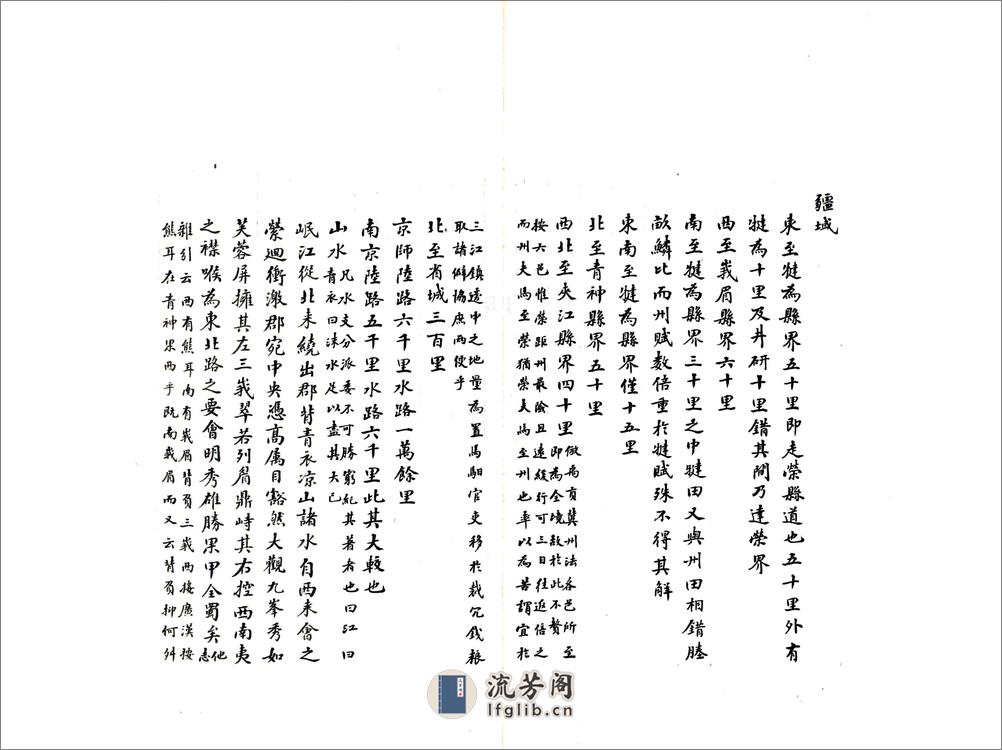 疆域
東至犍為縣界五十里即走榮縣道也五十里外有
犍為十里及井研十里錯其間乃達榮界
西至峩眉縣界六十里
南至犍為縣界三十里之中犍田又與州田相錯塍
畝鱗比而州賦數倍重於犍賦殊不得其解
東南至犍為縣界僅十五里
北至青神縣界五十里
西北至夾江縣界四十里倣禹貢冀州法各邑所至即為全境故於此不贅
按六邑惟榮距州最險且遠緩行可三日往返倍之
而州夫馬至榮猶榮夫馬至州也率以為苦謂宜於
三江鎮適中之地量為置馬馹官吏移於裁冗錢糧
取諸僻協庶兩便乎
北至省城三百里
京師陸路六千里水路一萬餘里
南京陸路五千里水路六千里此其大較也
山水凡水支分派委不可勝窮紀其著者也曰江曰青衣曰沫水足以盡其大已
岷江從北來繞出郡背青衣凉山諸水自西來會之
縈迴衝激郡宛中央憑高屬目豁然大觀九峯秀如
芙蓉屏擁其左三峩翠若列眉鼎峙其右控西南夷
之襟喉為東北路之要會明秀雄勝果甲全蜀矣他志
雜引云西有熊耳南有峩眉背負三峩西接廣漢按
熊耳在青神果西乎既南峩眉而又云背負抑何舛
流芳阁
lfglib.cn